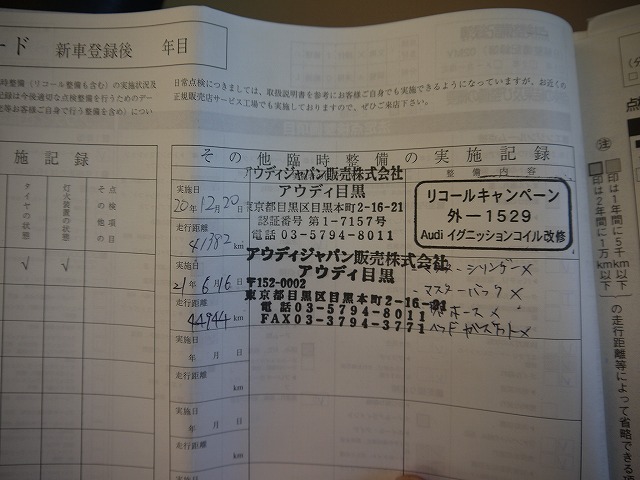 ード 新車登録後 年目
時整備(リコール整備も含む)の実施状況及
記録は今後適切な点検整備を行うためのデー
日常点検につきましては、取扱説明書を参考にお客様ご自身でも実施できるようになっていますが、お近くの
正規販売店サービス工場でも実施しておりますので、ぜひご来店下さい。
施記録
点検項目
その他の
灯火装置の状態
タイヤの状態
√ √
その他臨時整備の実施記録
整備内容
実施日
20年12月20日
走行距離
41382 km
アウディジャパン販売株式会社
アウディ目黒
東京都目黒区目黒本町2-16-21
認証番号 第1-7157号
電話 03-5794-8011
リコールキャンペーン
外-1529
Audi イグニッションコイル改修
実施日
21年6月16日
走行距離
44944 km
アウディジャパン販売株式会社
アウディ目黒
〒152-0002
東京都目黒区目黒本町2-16-21
電話 03-5794-8011
FAX 03-3794-3771
・マスターシリンダーメ
・マスターバックメ
ホースメ
ヘッドガスケットメ
実施日
年 月 日
走行距離
km
実施日
年 月 日
走行距離
km
実施日
点
注
印は1年間に5千km以下
印は2年間に1万km以下
の走行距離等によって省略できる